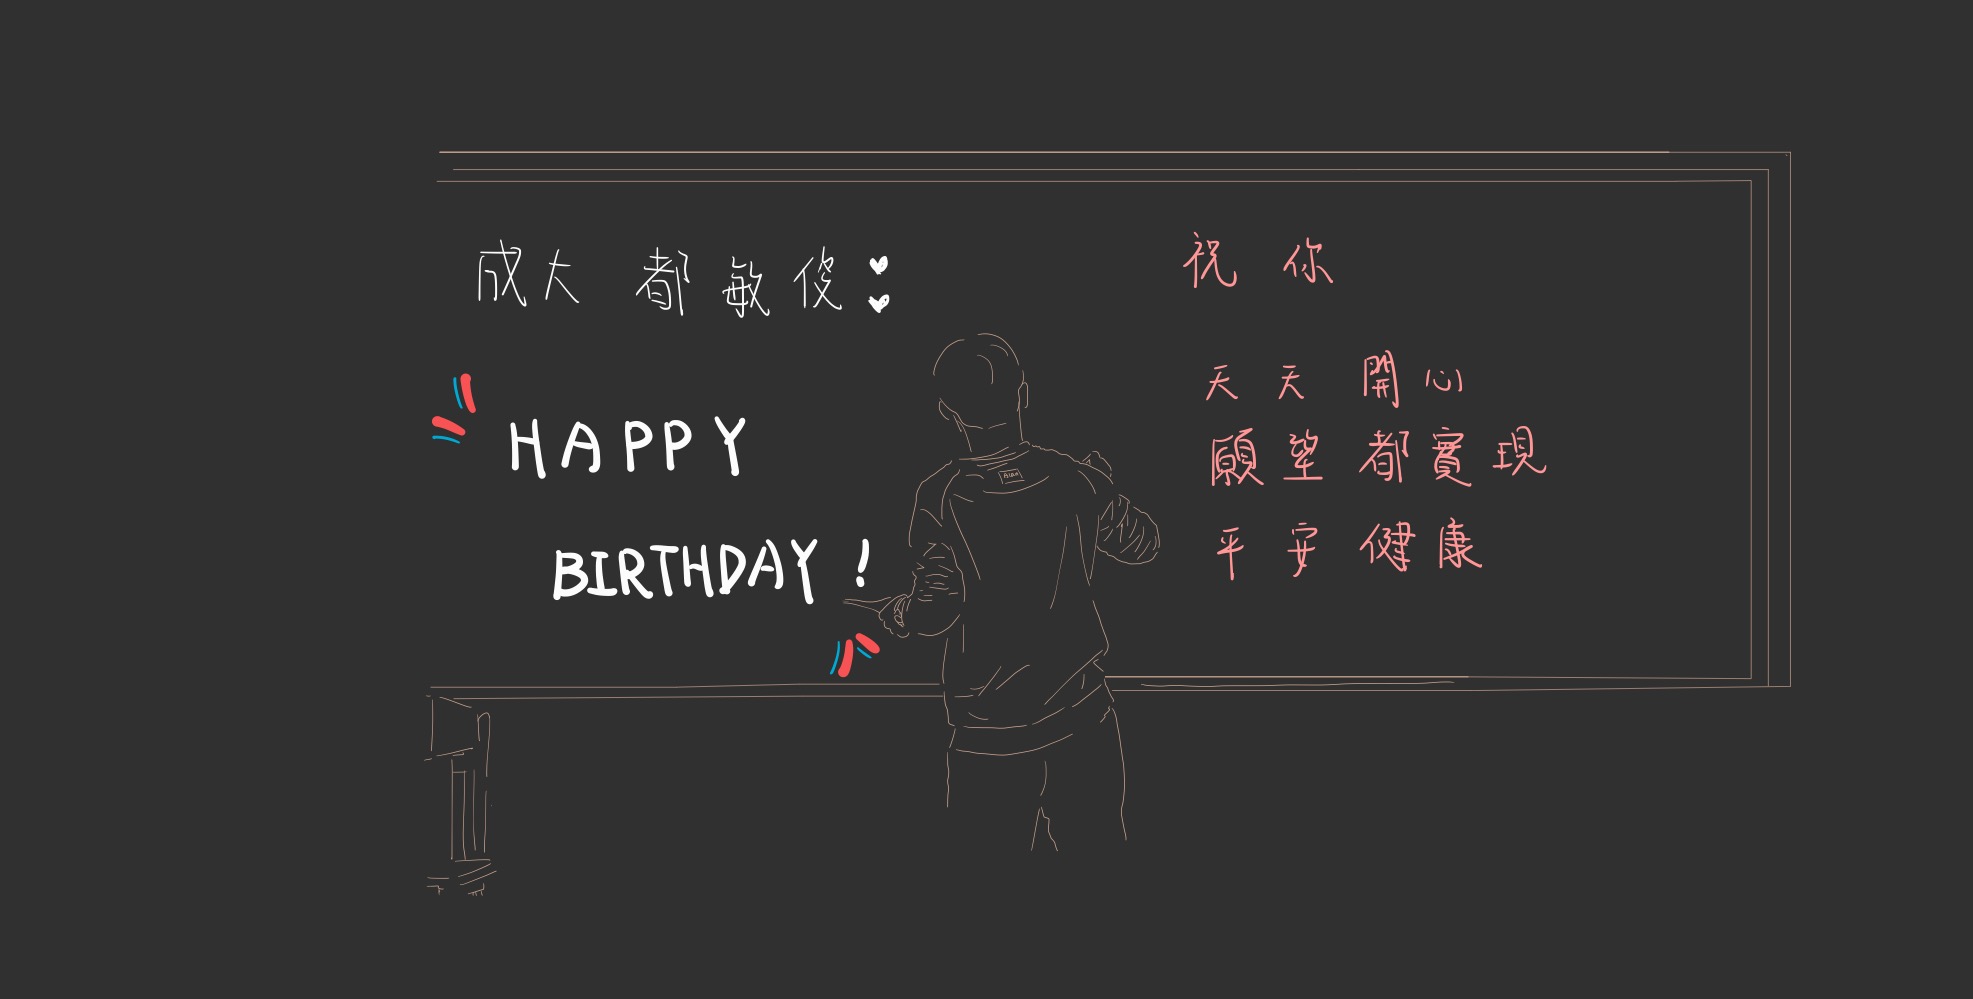 成大 都敏俊
HAPPY
BIRTHDAY!
祝你
天天開心
願望都實現
平安健康